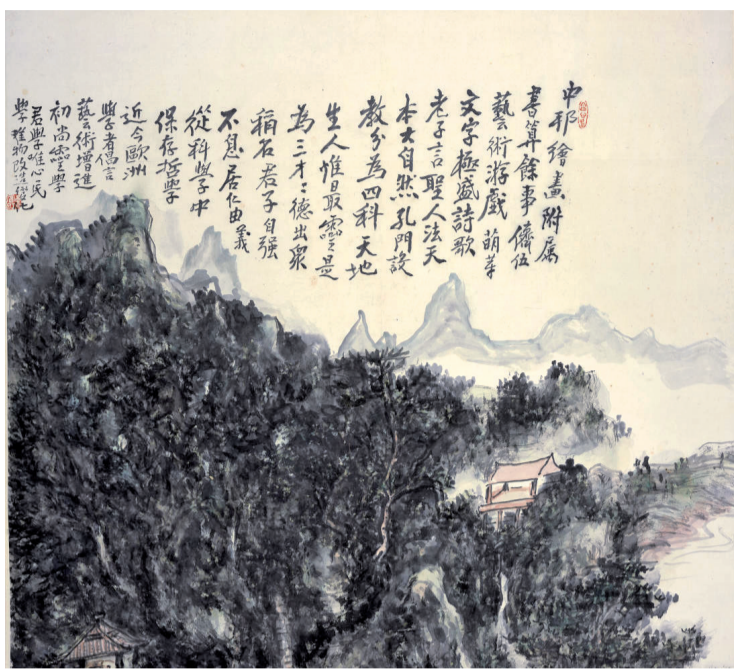 中邦繪畫附属
書算餘事儕伍
藝術游戲萌芽
文字極盛詩歌
老子言聖人法天
本大自然孔門設
教分為四科天地
生人惟最靈是
為三才〻德出衆
稱名君子自强
不息居仁由義
從科學中
保存哲學
近今歐洲
學者昌言
藝術增進
初尚靈學
君學唯心
學唯物改造